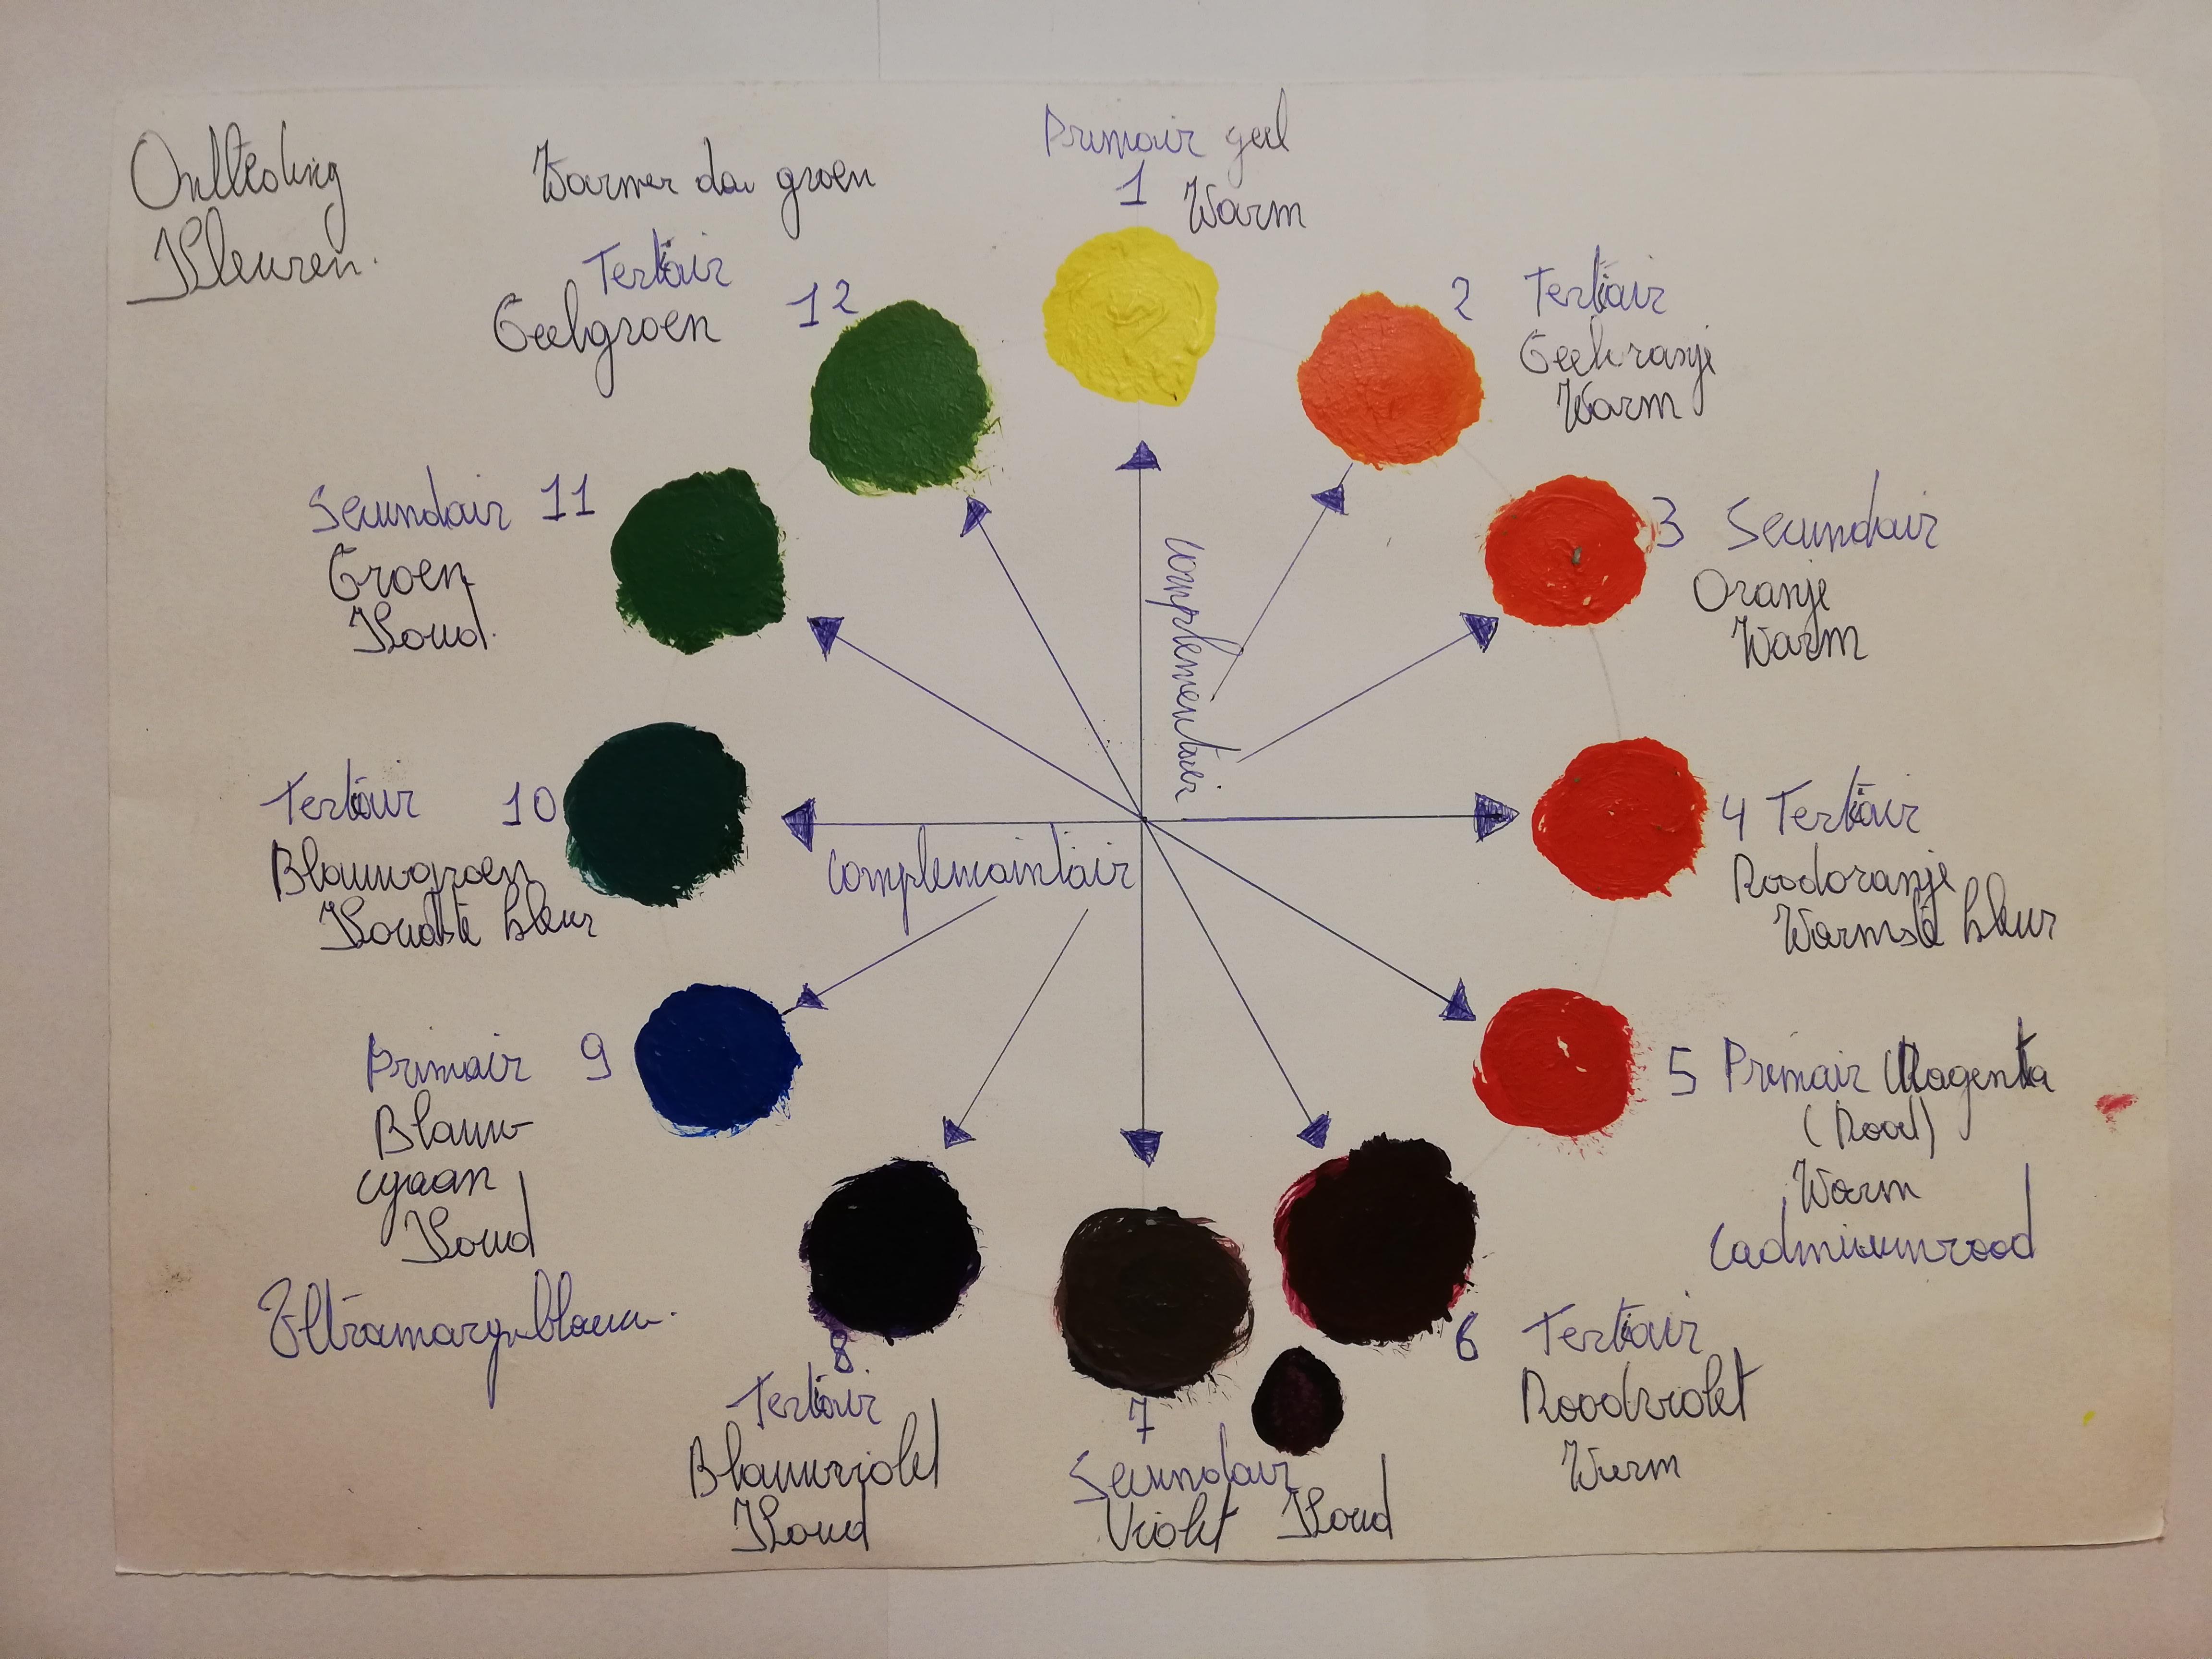 Ontleding
Kleuren.
Warmer dan groen
Primair geel
1 Warm
2 Tertiair
Geeloranje
Warm
3 Secundair
Oranje
Warm
4 Tertiair
Roodoranje
Warmste kleur
5 Primair Magenta
(Rood)
Warm
Cadmiumrood
6 Tertiair
Roodviolet
Warm
7
Secundair
Violet Koud
8
Tertiair
Blauwviolet
Koud
Primair 9
Blauw
cyaan
Koud
Tertiair 10
Blauwgroen
Koudste kleur
Secundair 11
Groen
Koud.
Tertiair 12
Geelgroen
complementair
complemaintair